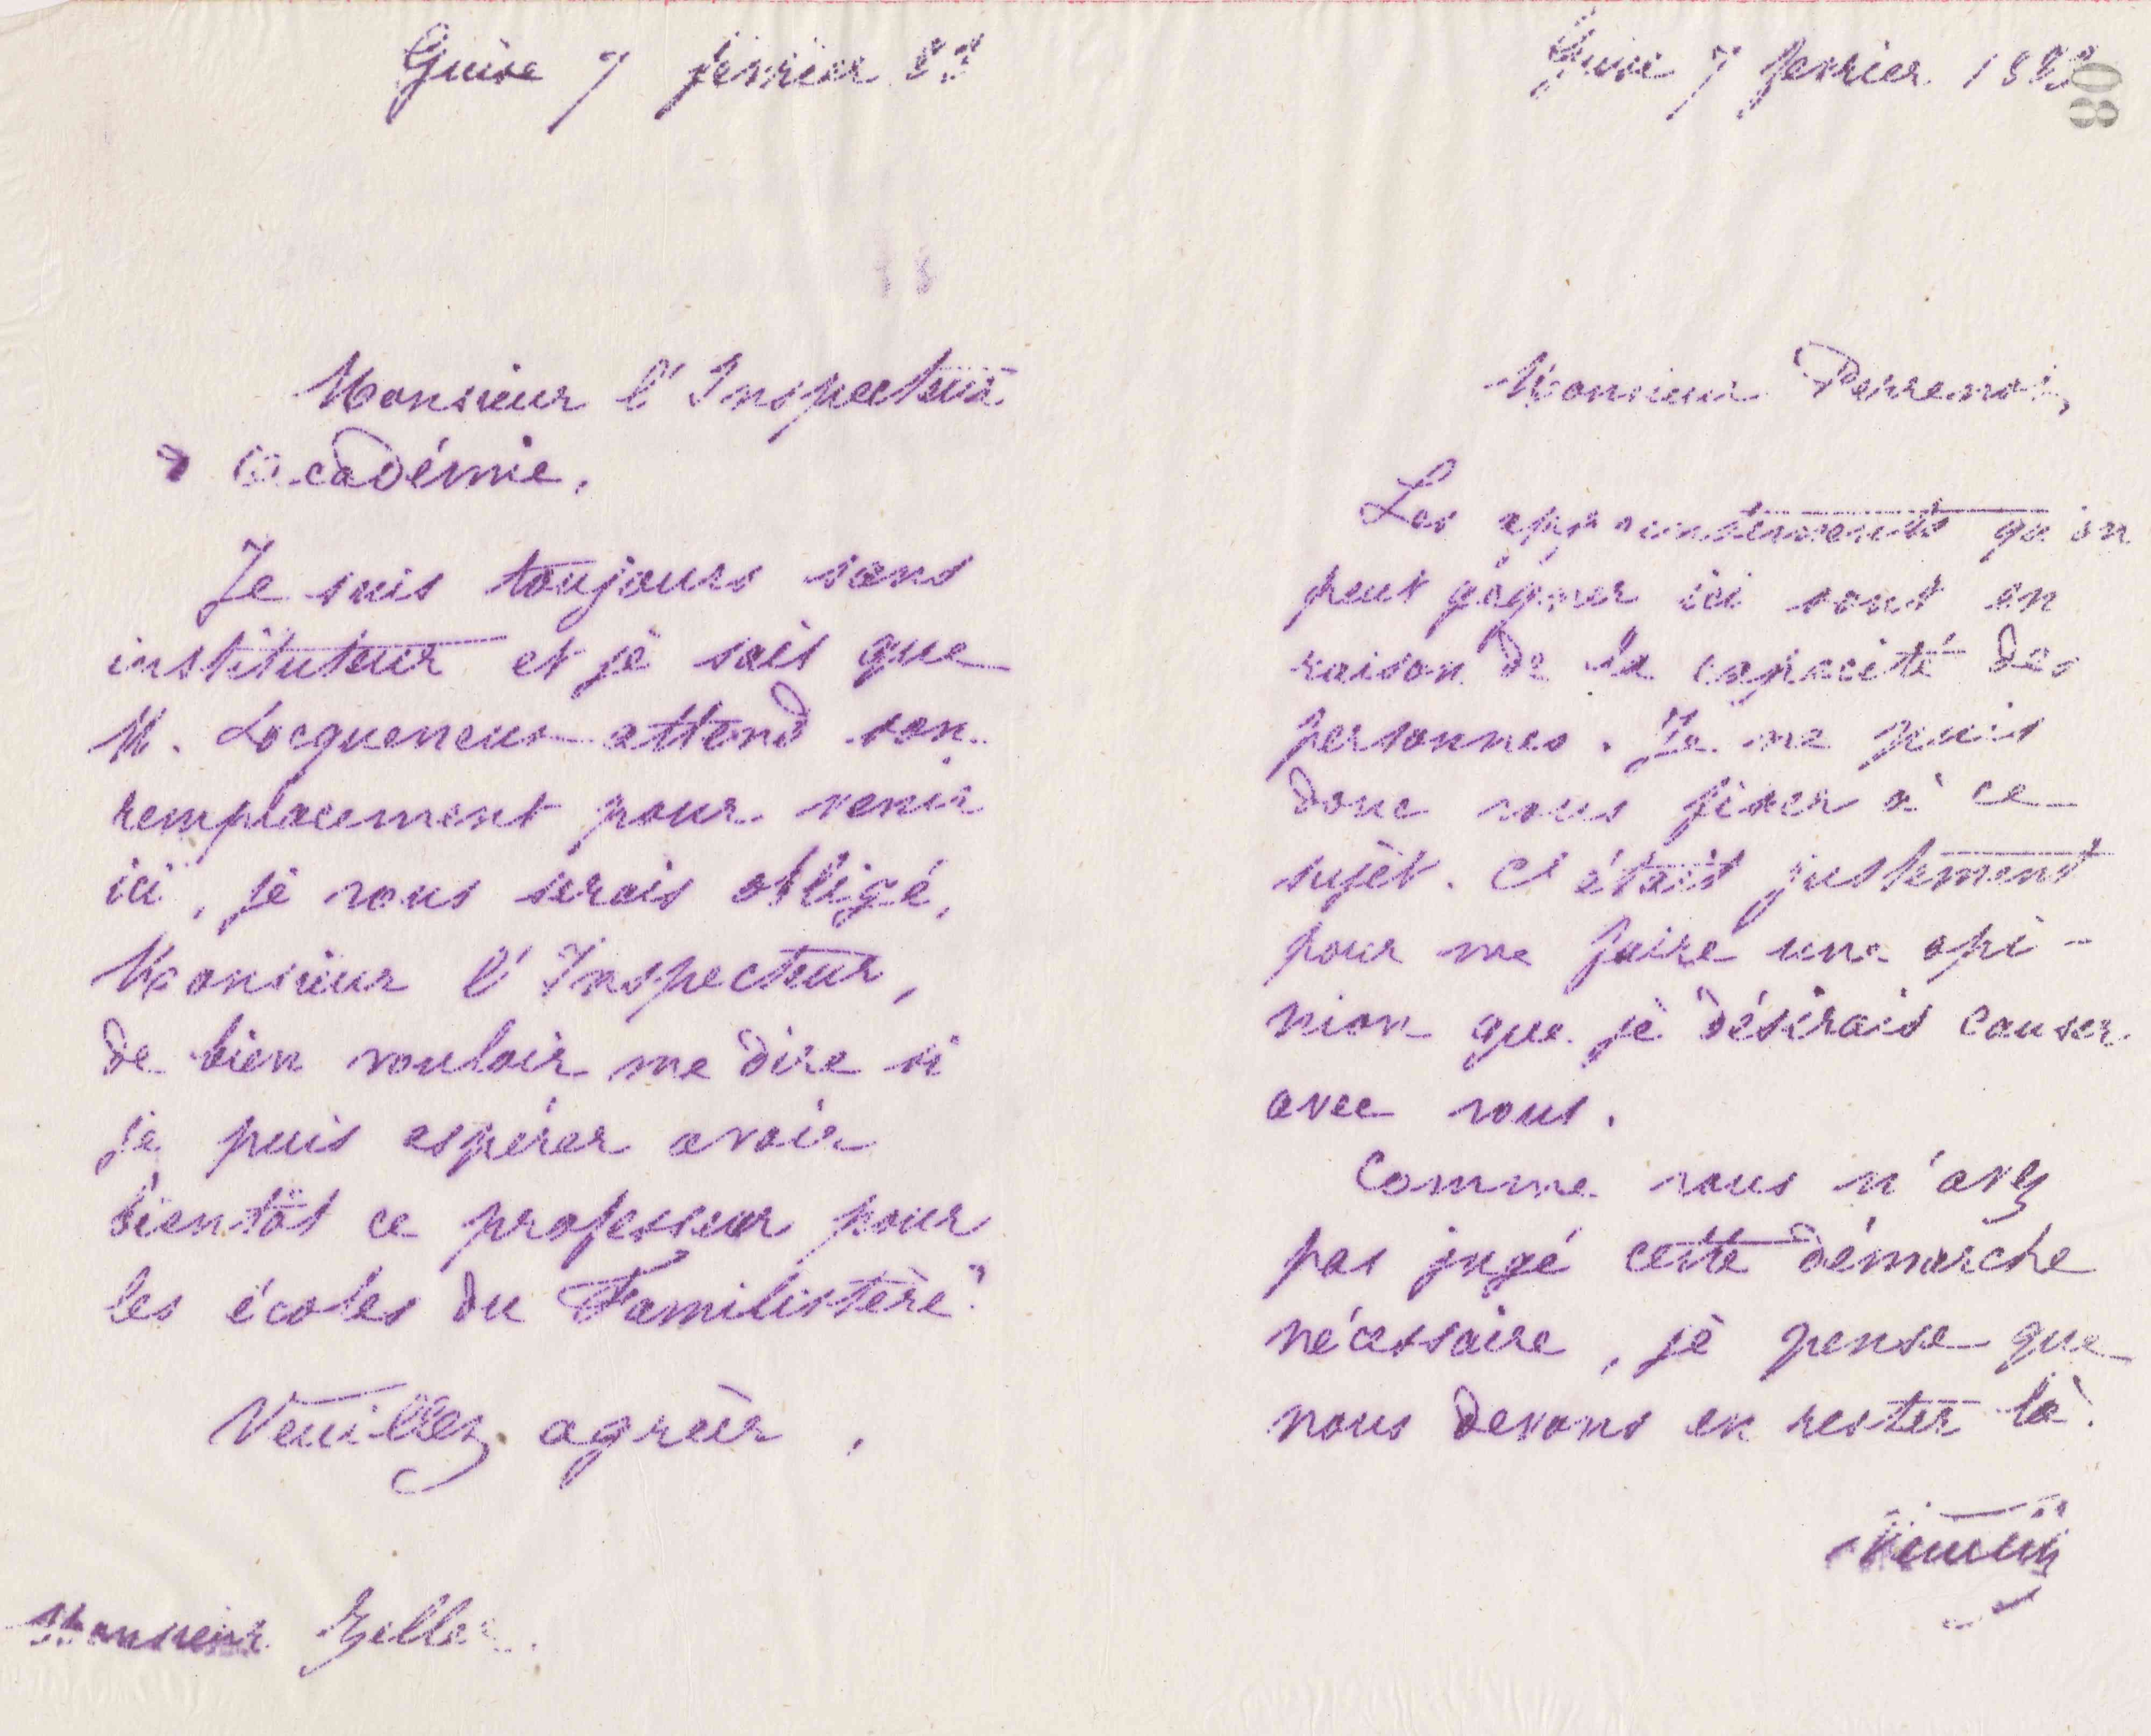 Guise 7 février 83
Monsieur l'Inspecteur
d'académie,
Je suis toujours sans
instituteur et je sais que
M. Locqueneux attend son
remplacement pour venir
ici, je vous serais obligé,
Monsieur l'Inspecteur,
de bien vouloir me dire si
je puis espérer avoir
bientôt ce professeur pour
les écoles du Familistère?
Veuillez agréer,
Monsieur Zeller
Guise 7 février 1883
80
Monsieur
Les appointements qu'on
peut gagner ici sont en
raison de la capacité des
personnes. Je ne puis
donc vous fixer à ce
sujet. C'était justement
pour me faire une opi-
nion que je désirais causer
avec vous.
Comme vous n'avez
pas jugé cette démarche
nécessaire, je pense que
nous devons en rester là.
Veuillez